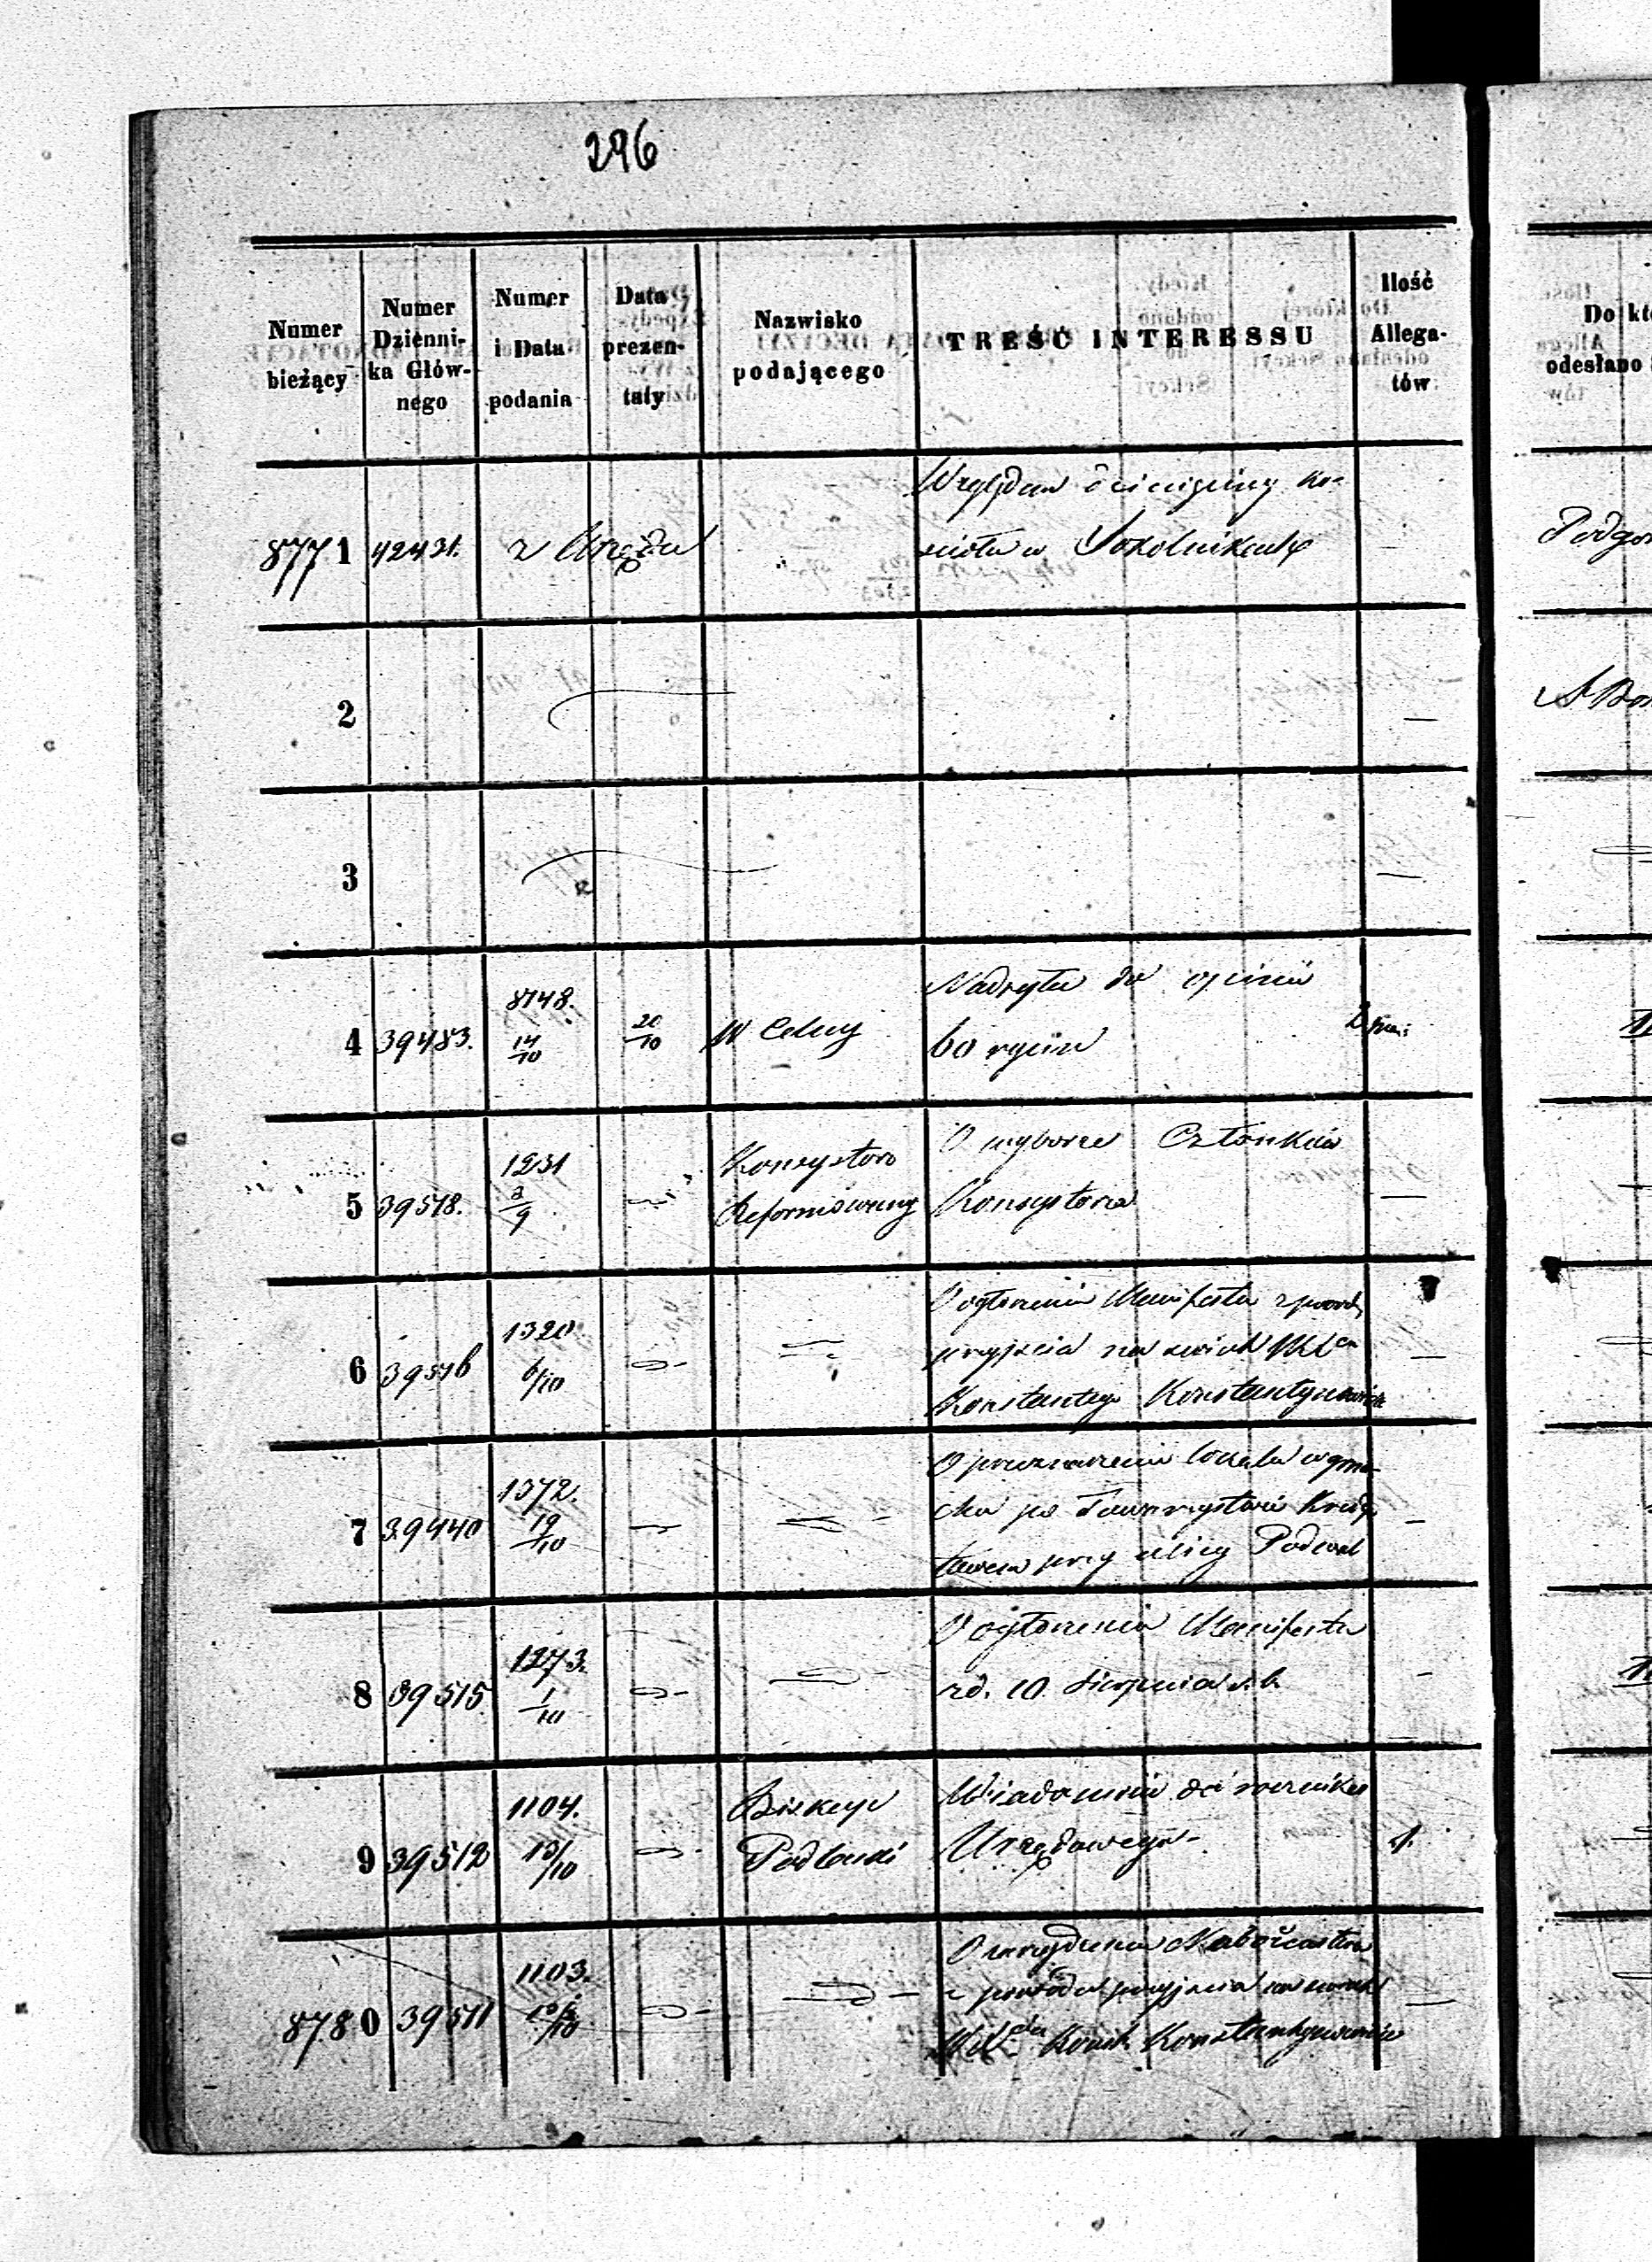 296
Numer bieżący
Numer Dzienni-ka Głów-nego
Numer i Data podania
Data prezen-taty
Nazwisko podającego
TREŚĆ INTERESSU
Ilość Allega-tów
Do
odesłano
8771 42431. z Urzędu
Względem
w Sokolnikach
2 —
3 —
4 39483. 8148. 14/10 20/10
Nadsyła do opinii
60 rycin
5 39518. 1231 2/9
Konsystorz Reformowany
O wyborze Członków
Konsystorza
—
6 39516 1320 6/10
O ogłoszeniu Manifestu z powodu
przyjścia na świat WKs
Konstantego Konstantynowicza
—
7 39440 1372. 19/10
O przeznaczenie lokalu w gma-
chu po Towarzystwie Kredy-
towem przy ulicy Podwal
—
8 39515 1273. 1/10
O ogłoszeniu Manifestu
z d. 10. Sierpnia r.b.
—
9 39512 1104. 13/10
Biskup Podlaski
Wiadomości do rocznika
Urzędowego
1.
8780 39511 1103.
O urządzeniu Nabożeństwa
z powodu przyjścia na świat
Konst. Konstantynowicza
—